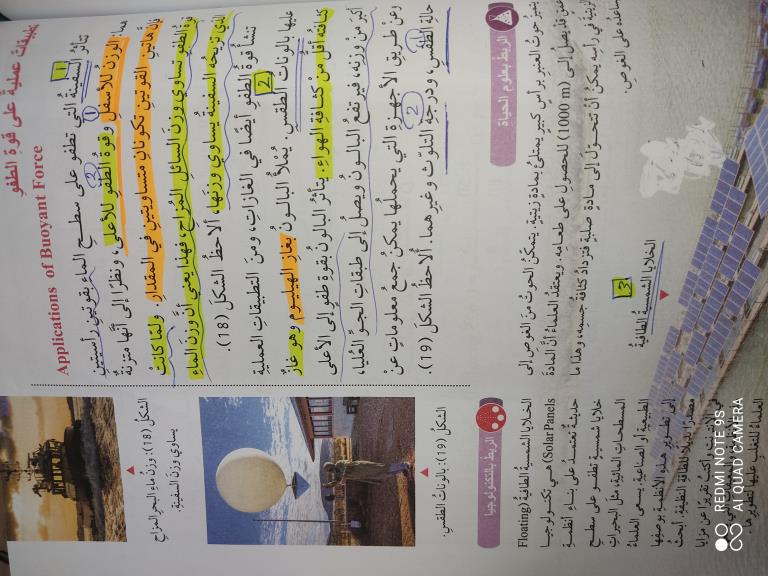 تطبيقات عملية على قوة الطفو
Applications of Buoyant Force
تتأثر السفينة التي تطفو على سطح الماء بقوتين رأسيتين
هما: الوزن للأسفل وقوة الطفو للأعلى، ونظرًا إلى أنها متزنة
فإن هاتين القوتين تكونان متساويتين في المقدار. ولما كانت
قوة الطفو تساوي وزن السائل المزاح، فهذا يعني أن وزن الماء
الذي تزيحه السفينة يساوي وزنها، ألاحظ الشكل (18).
تنشأ قوة الطفو أيضًا في الغازات، ومن التطبيقات العملية
عليها بالونات الطقس. يُملأ البالون بغاز الهيليوم وهو غاز
كثافته أقل من كثافة الهواء. يتأثر البالون بقوة طفو إلى الأعلى
أكبر من وزنه، فيرتفع البالون ويصل إلى طبقات الجو العليا،
وعن طريق الأجهزة التي يحملها يمكن جمع معلومات عن
حالة الطقس، ودرجة التلوث وغيرهما. ألاحظ الشكل (19).
1
1
2
2
1
2
الشكل (18): وزن ماء البحر المزاح
يساوي وزن السفينة.
الشكل (19): بالونات الطقس.
الربط بعلوم الحياة
يتميز حوت العنبر برأس كبير يمتلئ بمادة زيتية. يتمكن الحوت من الغوص إلى
عمق قد يصل إلى (1000 m) للحصول على طعامه. ويعتقد العلماء أن المادة
الزيتية في رأسه يمكن أن تتحول إلى مادة صلبة فتزداد كثافة جسمه، وهذا ما
يساعده على الغوص.
الربط بالتكنولوجيا
الخلايا الشمسية الطافية (Floating
Solar Panels) هي تكنولوجيا
حديثة تعتمد على بناء أنظمة
خلايا شمسية تطفو على سطح
المسطحات المائية، مثل البحيرات
الطبيعية أو الصناعية. يسعى العلماء
إلى تطوير هذه الأنظمة بوصفها
مصدرًا بديلًا للطاقة النظيفة. أبحث
في الإنترنت وأكتب تقريرًا عن مزايا
العلماء للتغلب عليها لتطويرها.
3
الخلايا الشمسية الطافية
REDMI NOTE 9S
AI QUAD CAMERA